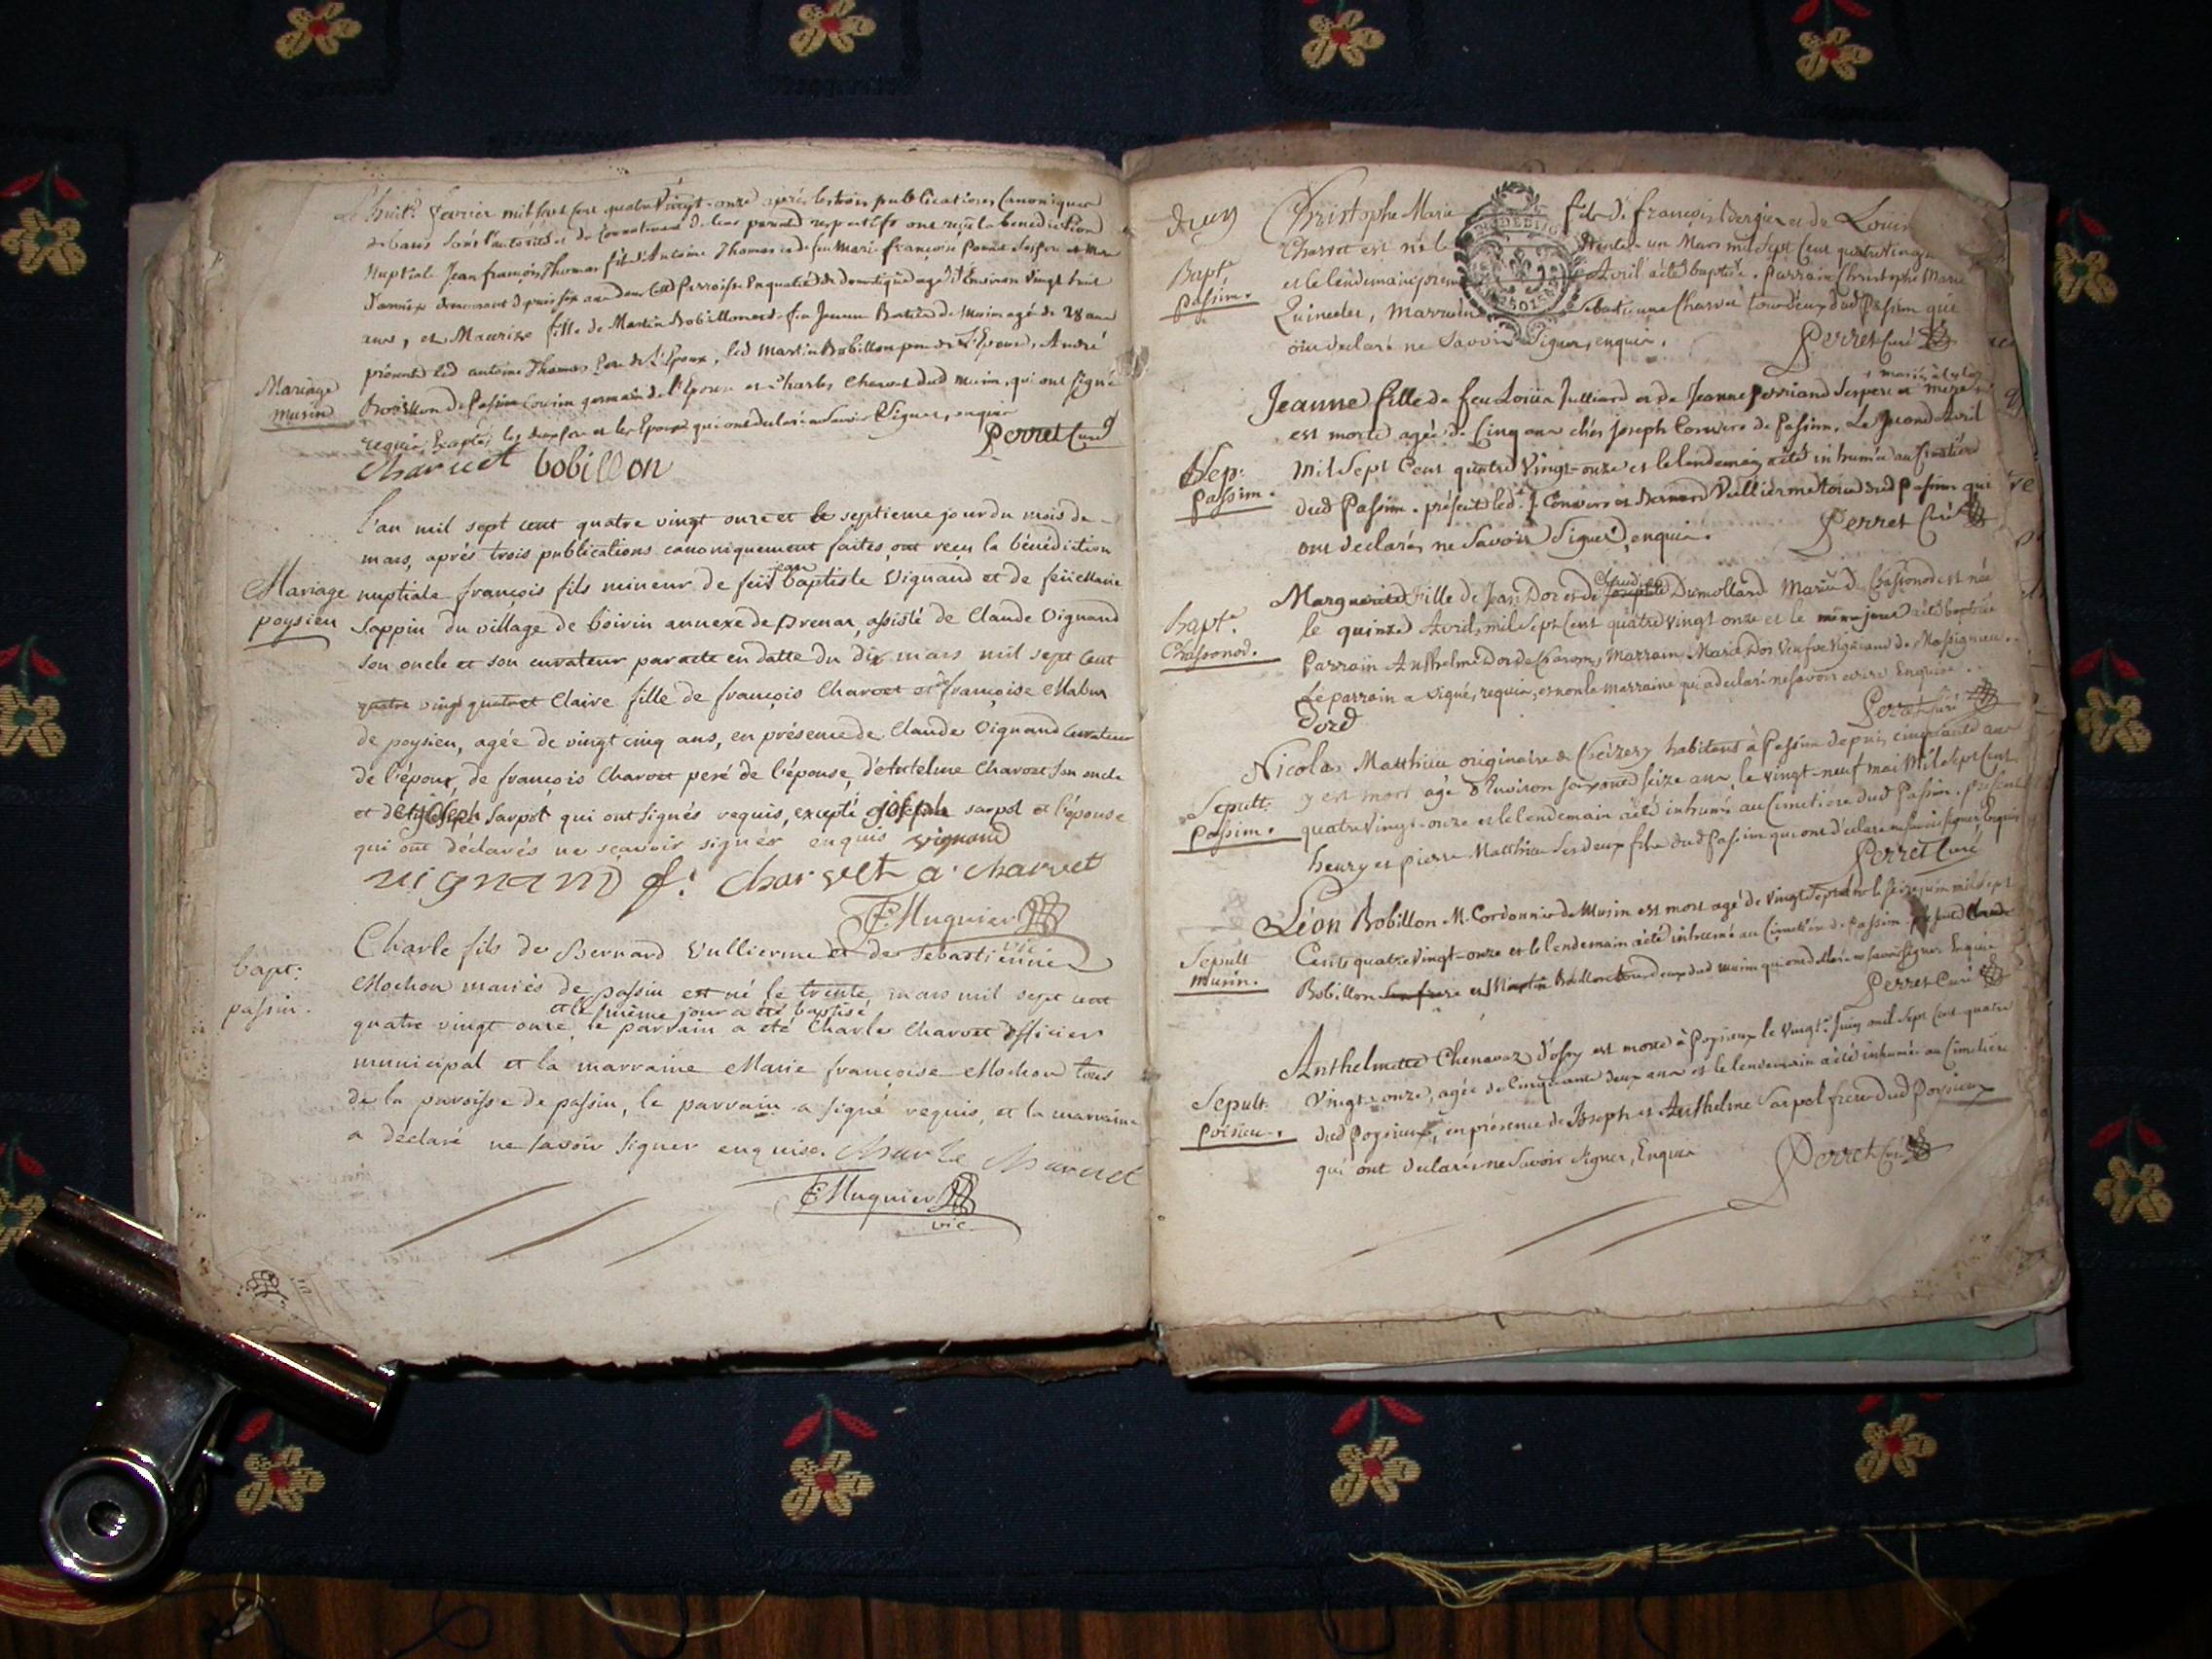 Le huit.e fevrier mil sept cent quatre vingt-onze après les trois publications canoniques
de bans sous l'autorité et de consentement de leur parents respectifs ont reçu la bénédiction
Nuptiale Jean françois Thomas fils d'Antoine Thomas et de feu Marie françoise
demeurant depuis six ans dans Parroisse En qualité de domestique agé d'Environ Vingt huit
ans, et Maurize fille de Martin Bobillon et de feu Bertin de Musin agé de 28 ans
présents led antoine Thomas Pere de L'Epoux, led Martin Bobillon pere de L'Epouse, André
Mariage
musin
de Passin Cousin germain de l'Epoux et Charles Charvet dud musin, qui ont signé
requis, Exceptés les et les Epoux qui ont declaré ne Savoir Signer, enquis
Perret Curé
Charvet bobillon
L'an mil sept cent quatre vingt onze et le septieme jour du mois de
mars, aprés trois publications canoniquement faites, ont reçu la bénédiction
Mariage
poysieu
nuptiale françois fils mineur de feü jean baptiste Vignand et de feüe Marie
Sappin du village de boirin annexe de Prenar, assisté de Claude Vignand
son oncle et son curateur par acte en datte du dix mars mil sept cent
quatre vingt quatre et Claire fille de françois Charvet et de françoise Mabun
de poysieu, agée de vingt cinq ans, en présence de Claude Vignand Curateur
de l'époux, de françois Charvet peré de l'épouse, d'Antelme Charvet son oncle
et de joseph Sarpol qui ont signés requis, excepté joseph sarpol et l'épouse
qui ont déclarés ne sçavoir signér enquis vignand
vignand f: charvet a: charvet
Huguier
vic
bapt:
passin.
Charle fils de Bernard Vullierme et de Sebastienne
Mochon mariés de passin est né le trente mars mil sept cent
et le même jour a été baptisé
quatre vingt onze, le parrain a été Charle Charvet officier
municipal et la marraine Marie françoise Mochon tous
de la paroisse de passin, le parrain a signé requis, et la marraine
a déclaré ne savoir signer enquise. Charle Charvet
Huguier
vic
Christophe Marie fils d. françois Bergier et de Loüise
Bapt.e
passim.
Charvet est né le trente un Mars mil Sept Cent quatre Vingt
et le lendemain premier Avril a été baptisé. parrain Christophe Marie
Quinettes, Marraine Sebastienne Charvet tous deux dud Passim qui
ont declaré ne Savoir Signer, enquis.
Perret Curé
Jeanne fille de feu Loüis Julliard et de Jeanne perriand Ses pere et mere
est morte agée de Cinq ans chés Joseph Convers de Passim, Le second Avril
Sep:
passim.
Mil Sept Cent quatre Vingt-onze et le lendemain a été inhumée au Cimetière
dud Passim. présents led. J. Convers et Bernard Vullierme tous dud Passim qui
ont declarés ne Savoir Signer, enquis.
Perret Curé
Bapt.e
Chassonod.
Marguerite Fille de Jean Dor et de Claudine Dumollard Mariés de Chassonod est née
le quinze Avril, mil Sept Cent quatre vingt onze et le même jour a été baptisée
Parrain Anthelme Dor de Marraine Marie Dor Veufve Viguand de Massignieu.
Le parrain a signé, requis, et non la marraine qui a declaré ne savoir ecrire Enquise.
Dord
Perret Curé
Nicolas Matthieu originaire de Ceizery habitant à Passim depuis cinquante ans
Sepult:
passim.
y est mort agé d'Environ soixante seize ans, le vingt-neuf mai Mil Sept Cent
quatre Vingt-onze et le lendemain a été inhumé au Cimetière dud Passim. présents
henry et pierre Matthieu ses deux fils dud Passim qui ont declaré ne Savoir signer Enquis
Perret Curé
Léon Bobillon M. Cordonnier de Musin est mort agé de Vingt le seize juin mil Sept
Sepult
Musin.
Cent quatre Vingt-onze et le lendemain a été inhumé au Cimetière de Passim. présents Claude
Bobillon Son frere et Martin Bobillon tous deux dud Musin qui ont declaré ne Savoir signer Enquis
Perret Curé
Anthelmette Chenavaz est morte à Poysieux le Vingt.e Juin mil Sept Cent quatre
Sepult:
poisieu.
Vingt-onze, agée de Cinquante deux ans et le lendemain a été inhumée au Cimetière
dud Poysieux, en présence de Joseph et Anthelme Sarpol freres dud Poysieux
qui ont declarés ne Savoir Signer, Enquis
Perret Curé